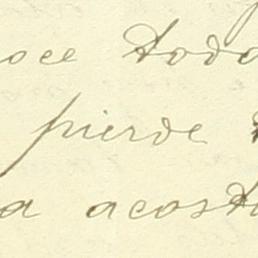 oce todo
pierde
a acosta